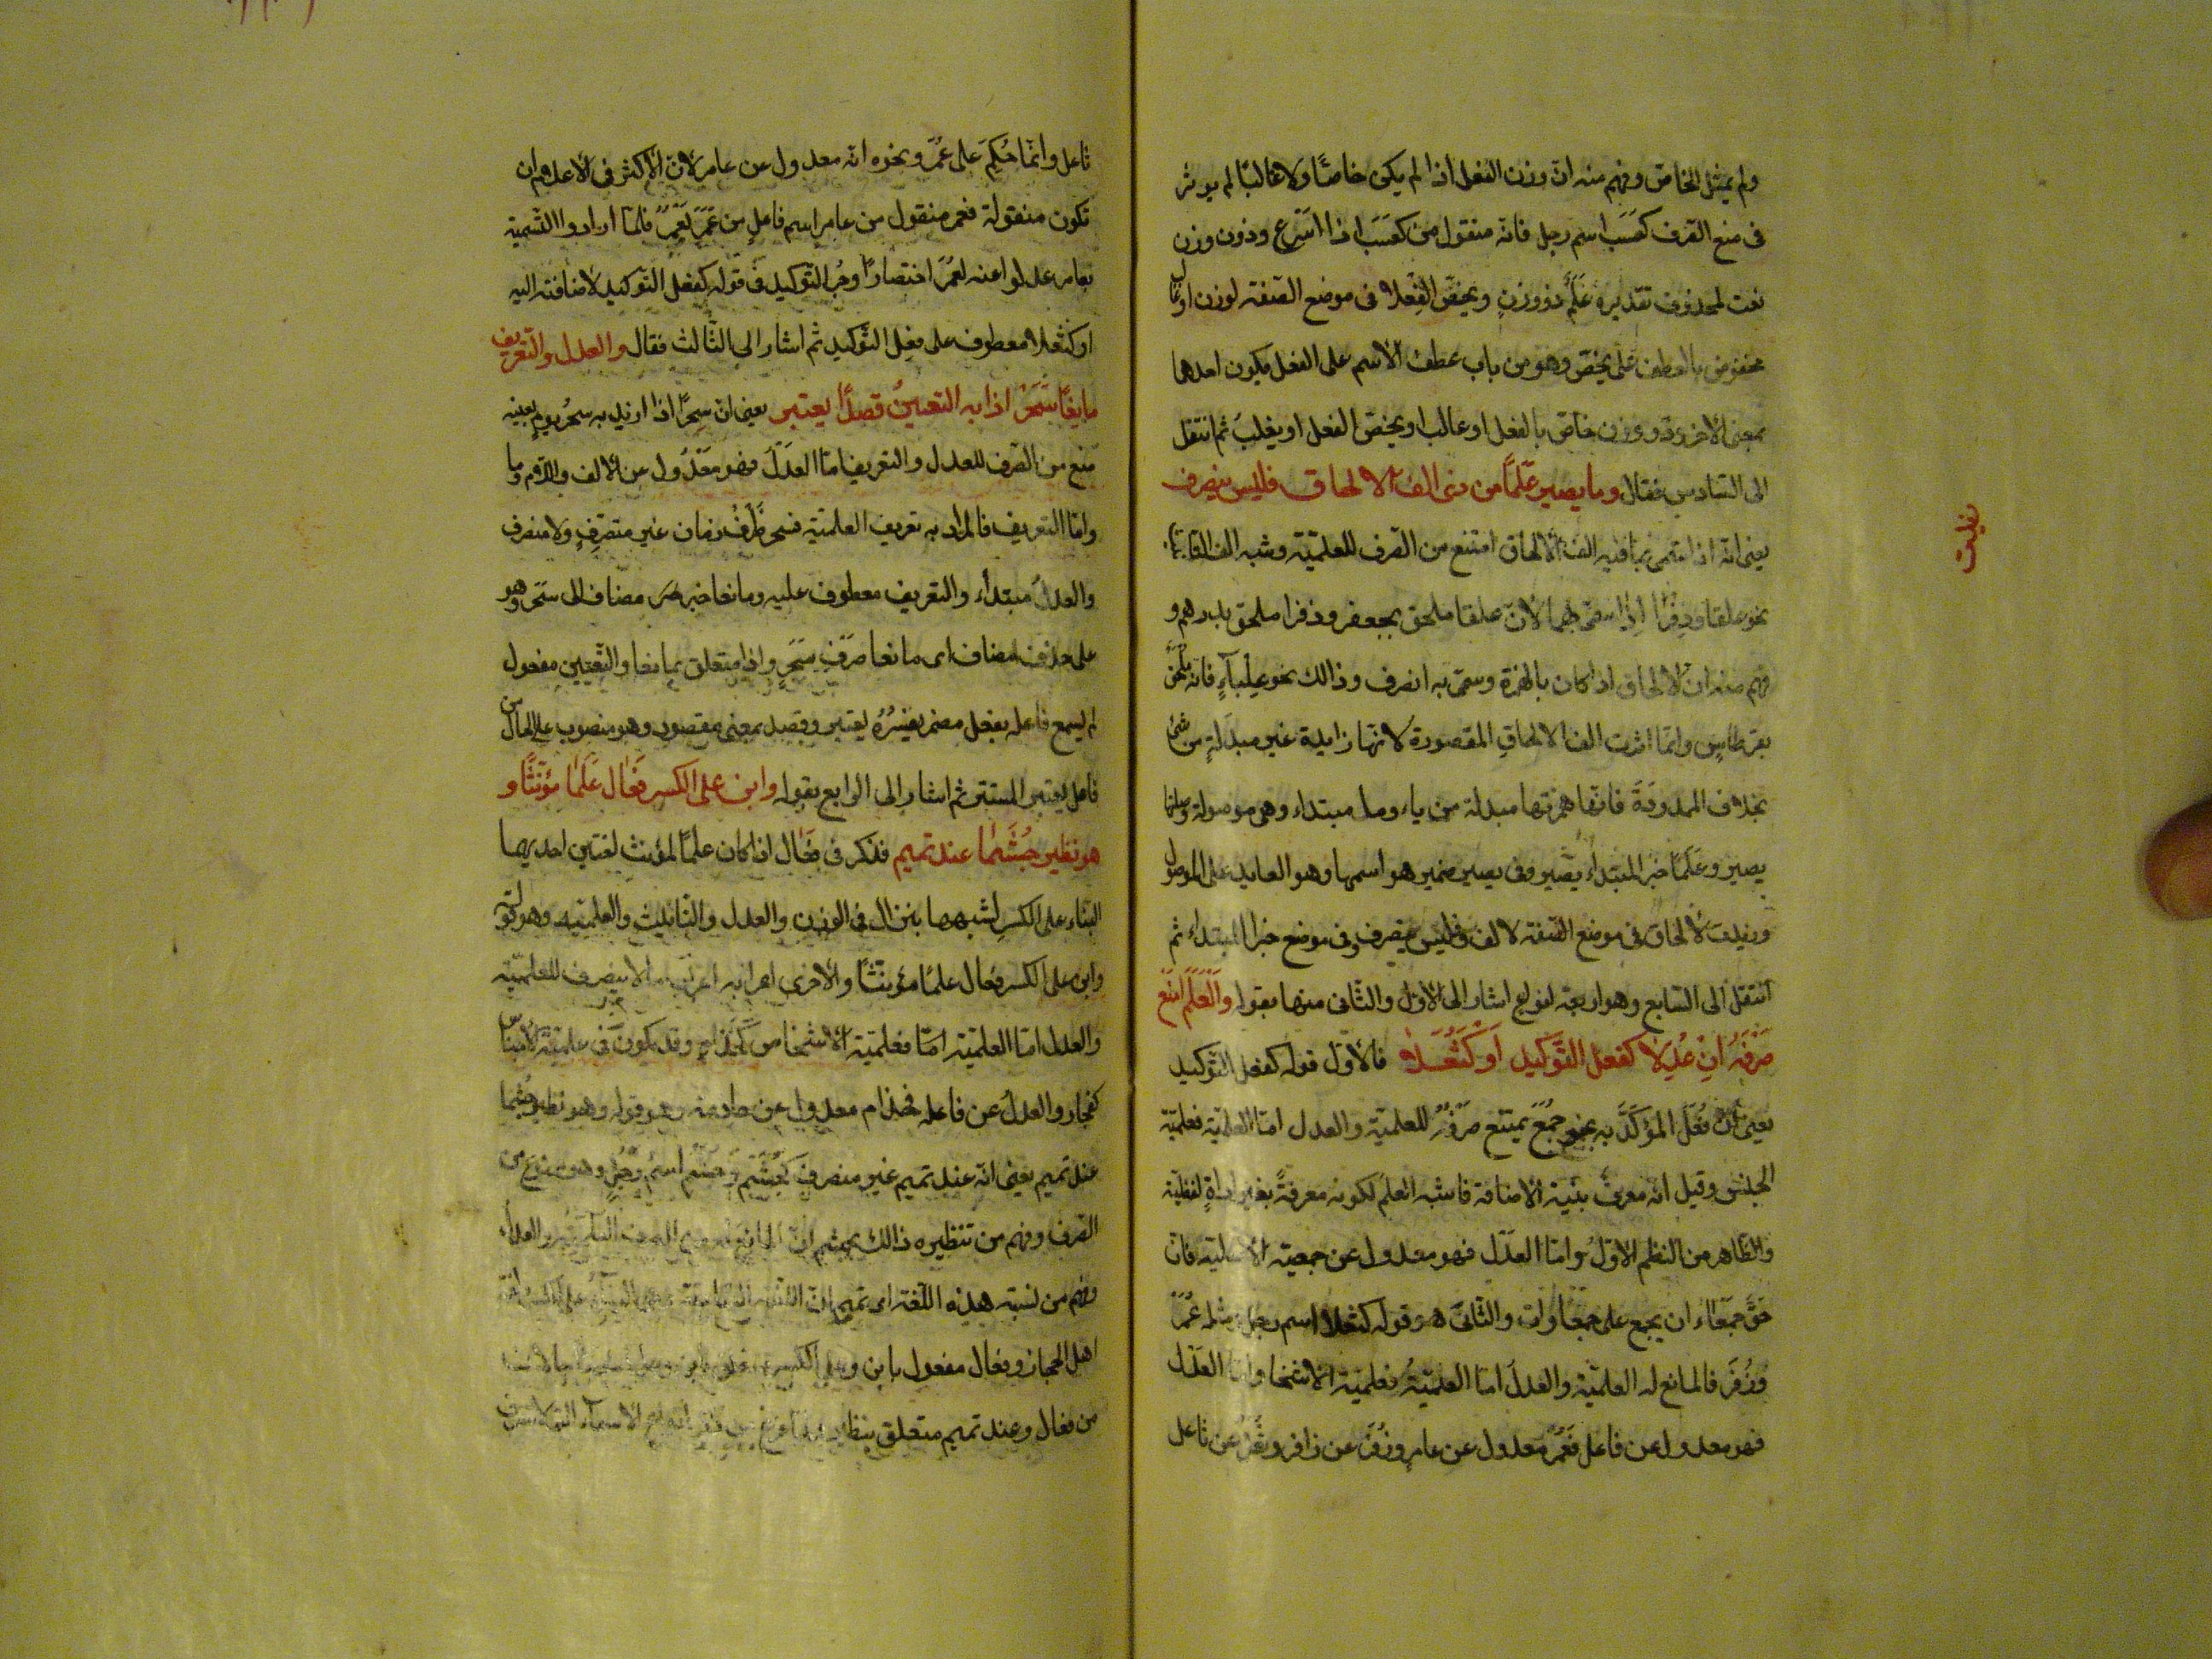 ولم يمثل الخاص وفهم منه ان وزن الفعل اذا لم يكن خاصًا ولا غالبًا لم يوثر
فى منع الصرف كعسَبَ اسم رجل فانه منقول من كعسَبَ اذا اسرع وذو وزن
نعت لمحذوف تقديره عَلَمٌ ذو وزنٍ ويخصّ الفِعلا فى موضع الصفة لوزن او غال
مخفوض بالعطف على يخصّ وهو من باب عطف الاسم على الفعل فيكون احدهما
بمعنى الاخر ذو وزن خاصّ بالفعل او غالب او يخصّ الفعل او يغلبُ ثم انتقل
الى السّادس فقال وما يصير عَلَمًا من ذى الف الالحاق فليس ينصرف
يعنى انه اذا سمى بما فيه الف الالحاق امتنع من الصّرف للعلميّة وشبه الف التانيث
نحو علقا وذِفْرًا اذا سمى بهما لانّ علقا ملحق بجعفر وذفرا ملحق بدرهم و
فهم منه ان الالحاق اذا كان بالهمزة وسمى به انصرف وذالك نحو عِلْبَآءٍ فانه ملحق
بقرطاسٍ وانّما اثرت الف الالحاقِ المقصورة لانها زايدة غير مبدَلةٍ من شئ
بخلاف الممدودة فانّها همزتها مبدلة من ياء وما مبتداء وهى موصولة وصلتها
يصير وعَلَمًا خبر المبتداء يصير وفى يصير ضمير هو اسمها وهو العايد على الموصول
وزيدت لالحاق فى موضع الصّفة لالف وفليس ينصرف فى موضع خبر المبتداء ثم
انتقل الى السّابع وهو اربعة انواع اشار الى الاوّل والثّانى منها بقوله والعَلَمَ امنَع
صَرْفَهُ انْ عُدِلا كفعل التّوكيد اَو كثُعَلا فالاوّل قوله كفعل التّوكيد
يعنى انّ فُعَلَ المؤكَّدَ به نحو جُمَعَ يمتنع صَرْفُه للعلميّة والعدل امّا العلميّة فعلميّة
الجنس وقيل انه معرفٌ بنيّة الاضافة فاشبه العلمَ لكونه معرفةً بغير اداةٍ لفظيّة
والظّاهر من النظم الاوّل وامّا العدْل فهو معدول عن جمعيّته الاصلية فانّ
حَقَّ جمعَاءَ ان يجمع على جمعاوات والثّانى هو قوله كثعلا اسم رجل ومثله عُمَرُ
وزُفَرُ فالمانع له العلميّة والعدلُ امّا العلميّةُ فعلميّة الاشخاص وامّا العدْل
فهو معدول عن فاعل فعُمَرُ معدول عن عامرٍ وزُفَرُ عن زافر وثُعَلُ عن ثاعل
زيدت
ثاعل وانّما حُكِمَ على عُمَرَ ونحوه انّه معدول عن عامر لانّ الاكثر فى الاعلام ان
تكون منقولة فعمر منقول من عامر اسم فاعلٍ من عَمَرَ يَعْمُرُ فلمّا ارادوا التّسمية
بعامر عدلوا عنه لعُمَرَ اختصارًا وجُرّ التّوكيد فى قوله كفعل التّوكيد لاضافته اليه
او كثعلا معطوف على فعل التّوكيد ثم اشار الى الثّالث فقال والعدل والتّعريف
مانِعًا سَحَرْ اذا به التعيينُ قصدًا يعتبر يعنى انّ سحرًا اذا اريد به سحرُ يومٍ بعينه
منع من الصّرف للعدل والتعريف امّا العدْل فهو معدُول عن الالف واللّام وا
وامّا التعريف فالمراد به تعريف العلميّة فسحر ظَرْفُ زمان غير متصرفٍ ولا منصرف
والعدل مبتدأء والتعريف معطوف عليه ومانعا خبر مضاف الى سَحَرَ وهو
على حذف مضاف اى مانعا صَرْفِ سَحَرٍ واذا متعلق بمانعا والتّعيين مفعول
لم يسمع فاعله بفعل مضمر يفسّرهُ يعتبر وقصد بمعنى مقصود وهو منصوب على الحال من
فاعل يعتبر المستتر ثم اشار الى الرابع بقوله وابن على الكسر فَعَال عَلَمًا مُؤنّثًا و
هو نظير جُشَمَا عند تميم فذكر فى فَعَال اذا كان علمًا لمؤنث لغتين احديهما
البناء على الكسرِ لشبهها بنزال فى الوزن والعدل والتّانيث والعلمية وهو قوله
وابن على الكسر فعال علمًا مؤنّثًا والاخرى اعرابه اعراب مالا ينصرف للعلميّة
والعدل امّا العلميّة امّا فعلميّة الاشخاص كحذامِ وقد يكون فى علميّة الاجناس
كفجار والعدلُ عن فاعله فحذام معدول عن حاذمة وهو قوله وهو نظير جُشما
عند تميم يعنى انّه عند تميم غير منصرفٍ كجُشَمَ وجُشَمُ اسمُ رجُلٍ وهو ممنوع من
الصرف وفهم من تنظيره ذالك بجشم انّ المانع له من الصرف العلميّة والعدل
وفهم من نسبته هذه اللّغة الى تميم انّ اللّغة السّابقة وهى البناءُ على الكسر لغة
اهل الحجاز وفعال مفعول بابن وعلى الكسر
من فعال وعند تميم متعلق بنظير الاسماء التى لا تنصرف